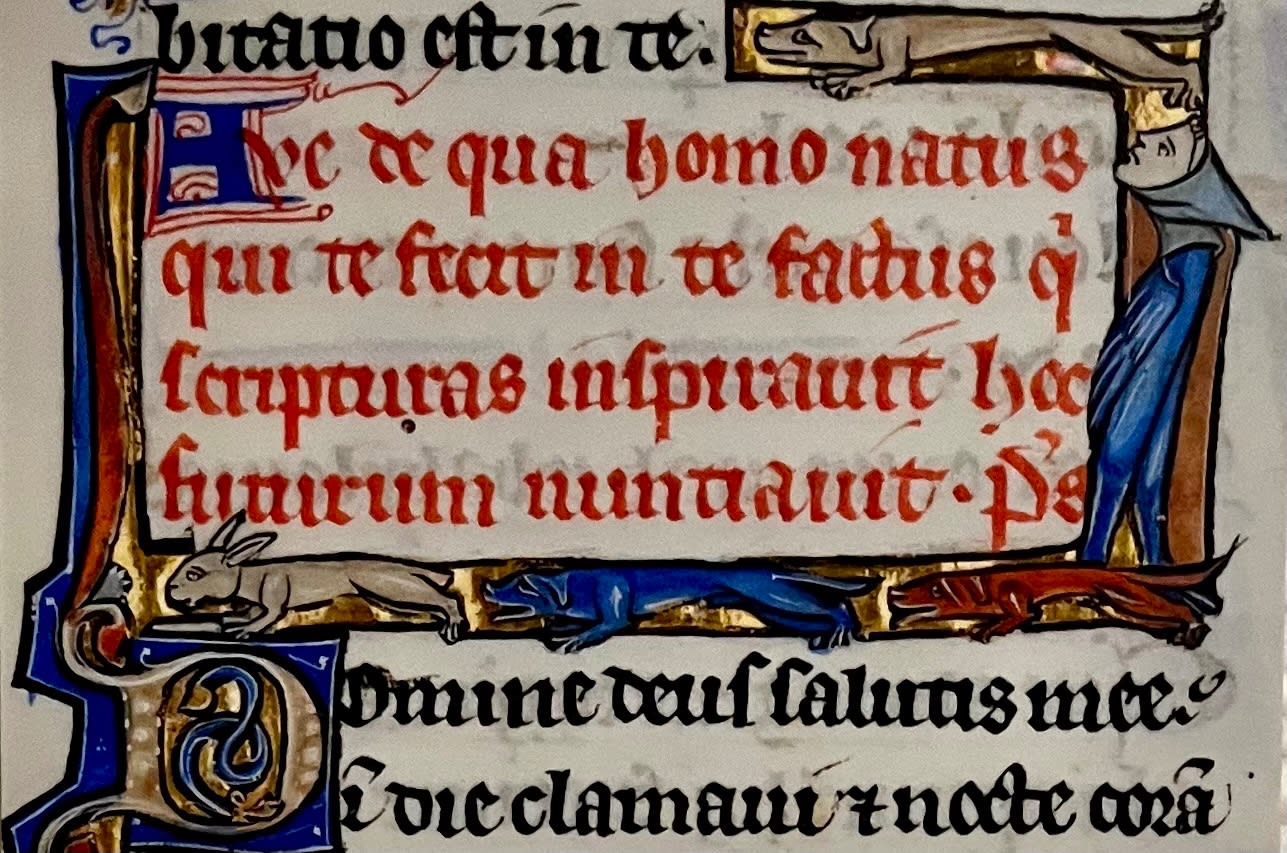 bitatio est in te.
Ave de qua homo natus
qui te fecit in te factus qͥ
scripturas inspirauit hoc
futurum nuntiauit. P̾s
Domine deuſ ſalutis mee.
ī die clamaui ⁊ nocte corā